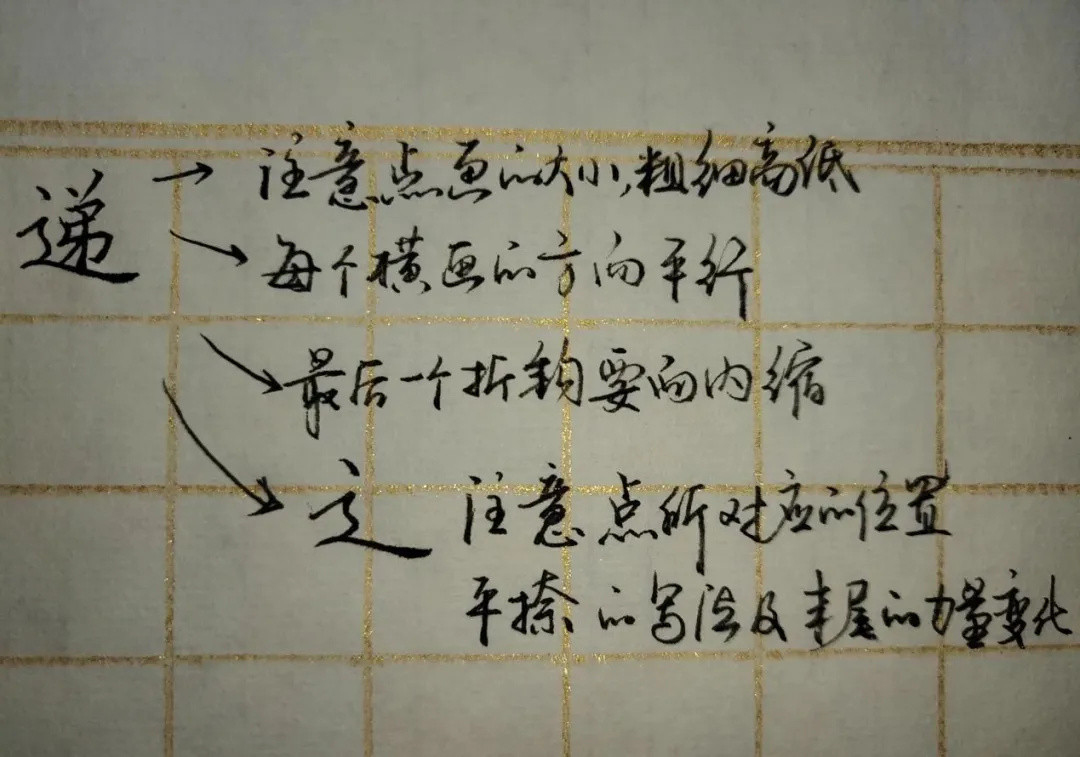 递 → 注意点画的大小,粗细高低
→ 每个横画的方向平行
→ 最后一个折钩要向内缩
→ 辶 注意点所对应的位置
平捺的写法及末尾的力量变化